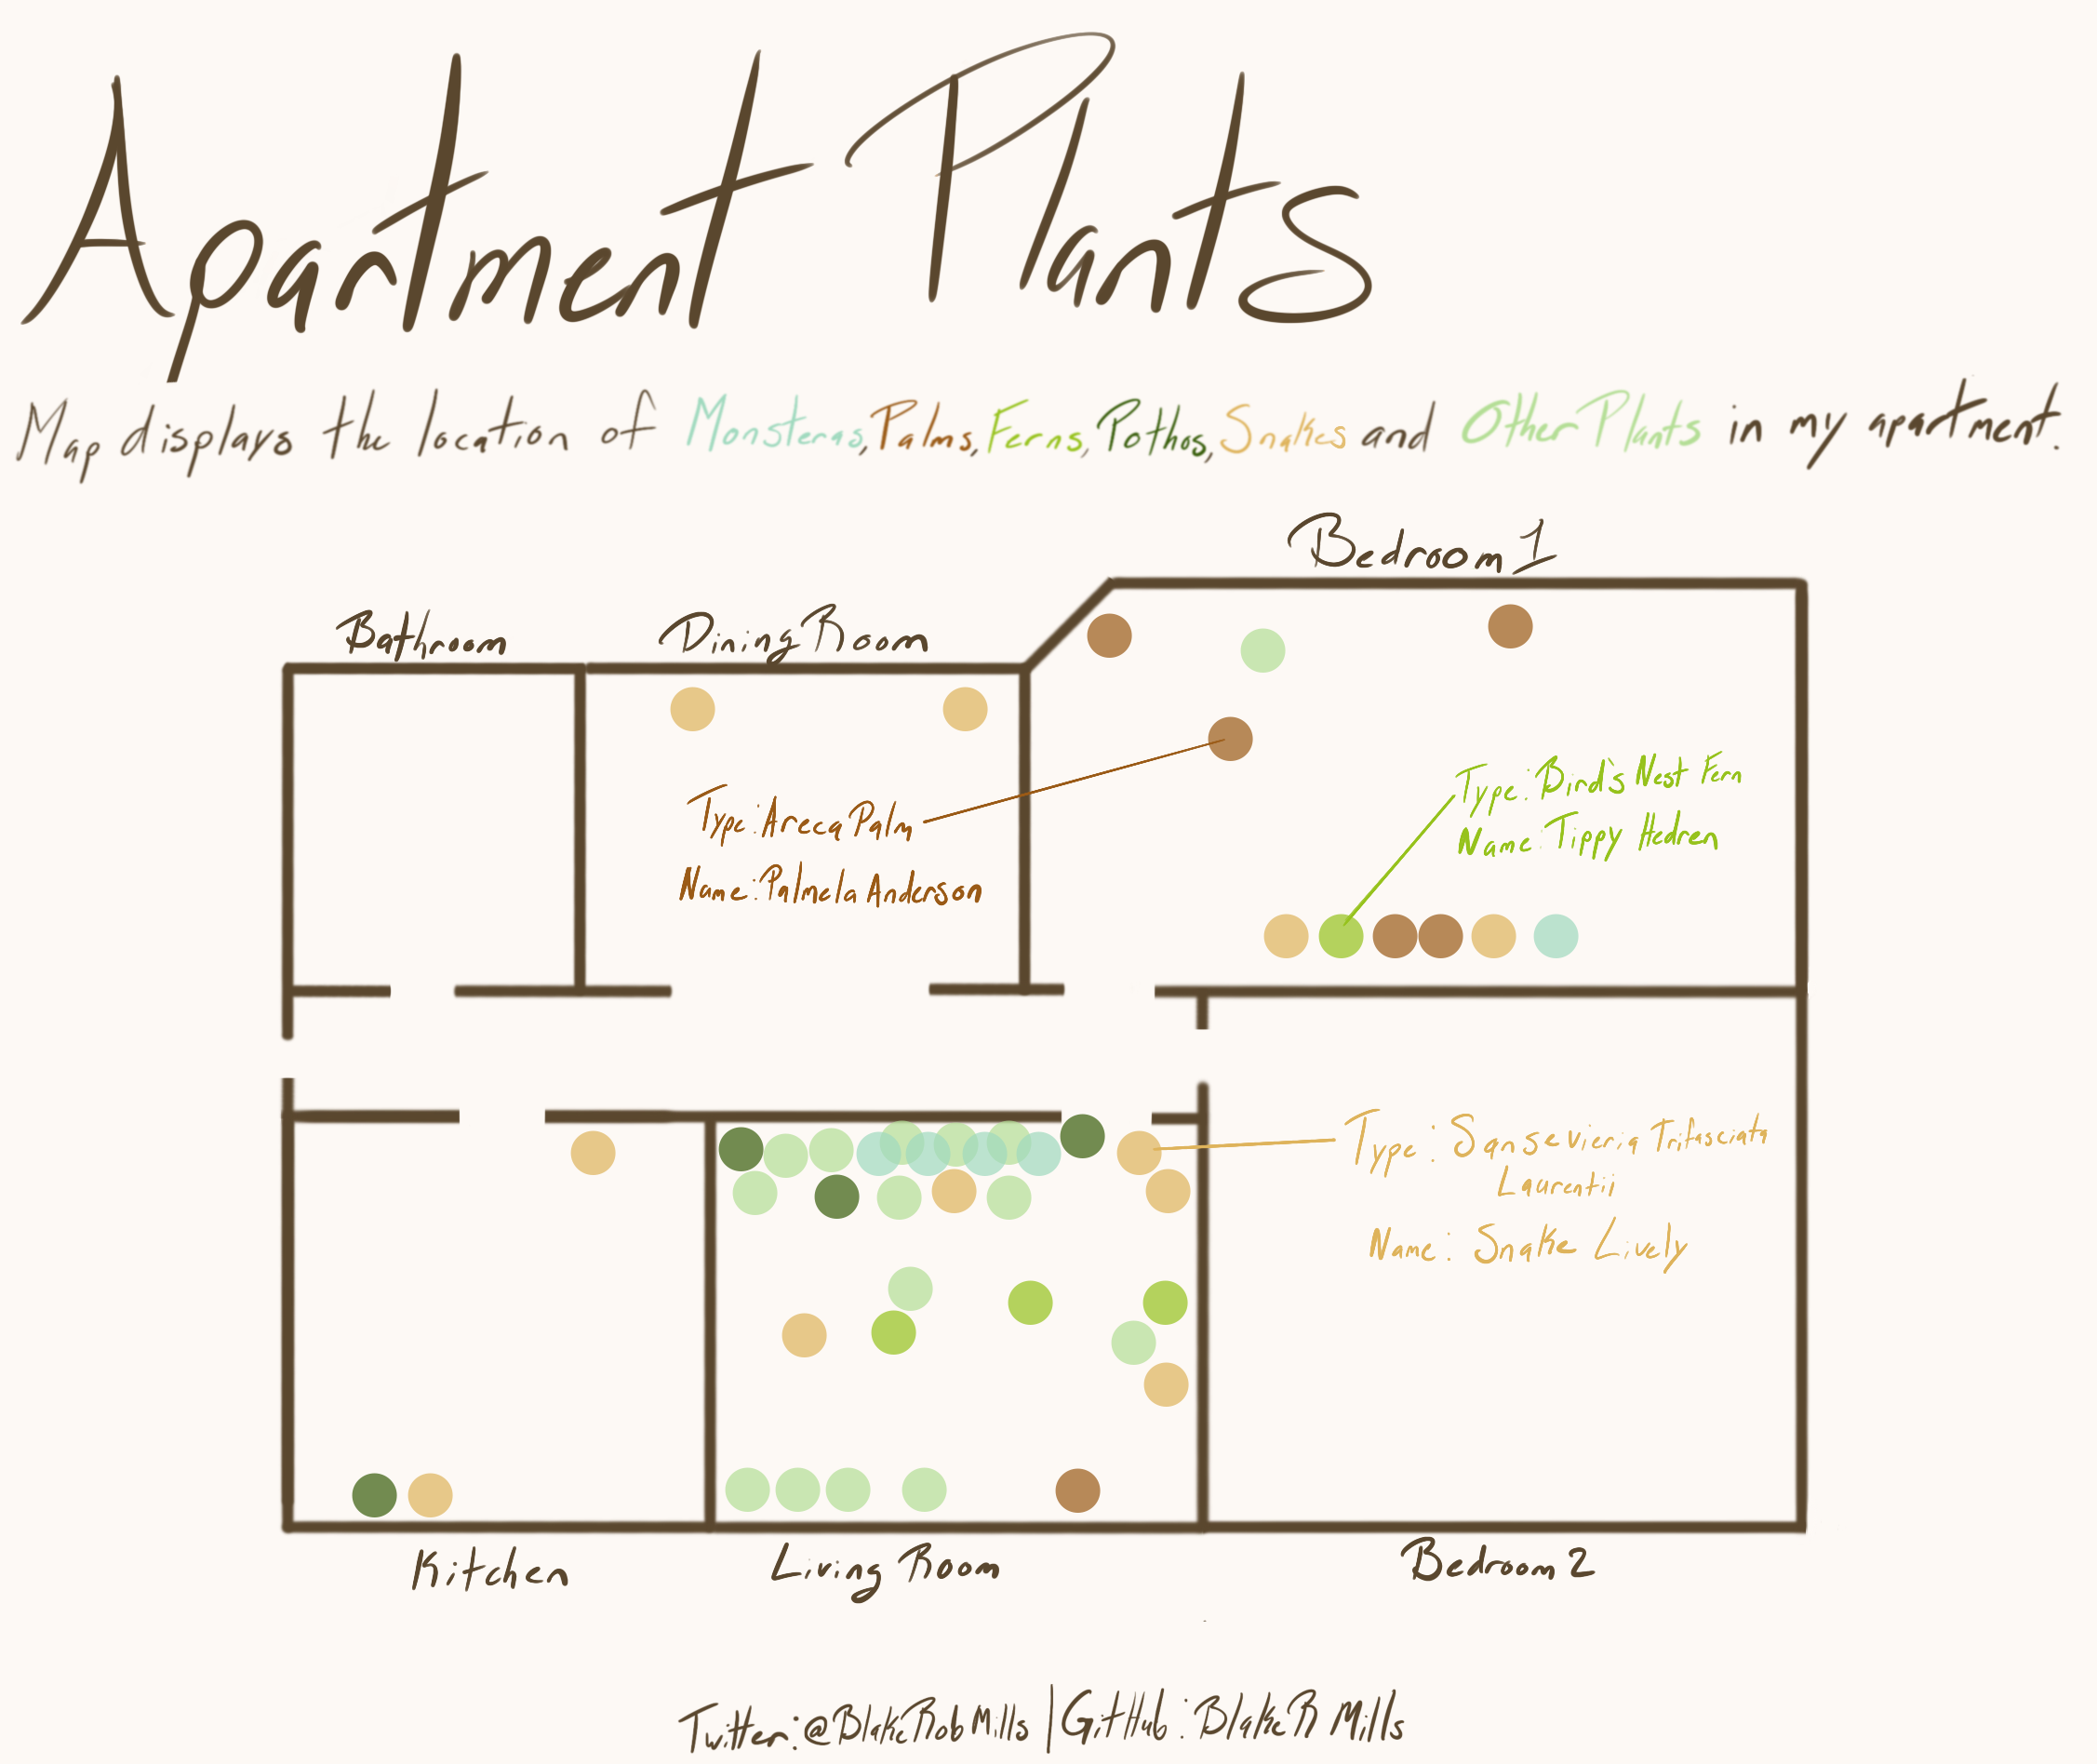 Apartment Plants
Map displays the location of Monsteras, Palms, Ferns, Pothos, Snakes and Other Plants in my apartment.
Bedroom 1
Bathroom
Dining Room
Type: Bird's Nest Fern
Name: Tippy Hedren
Type: Areca Palm
Name: Palmela Anderson
Type: Sansevieria Trifasciata
Laurentii
Name: Snake Lively
Kitchen
Living Room
Bedroom 2
Twitter: @BlakeRobMills | GitHub: BlakeRMills